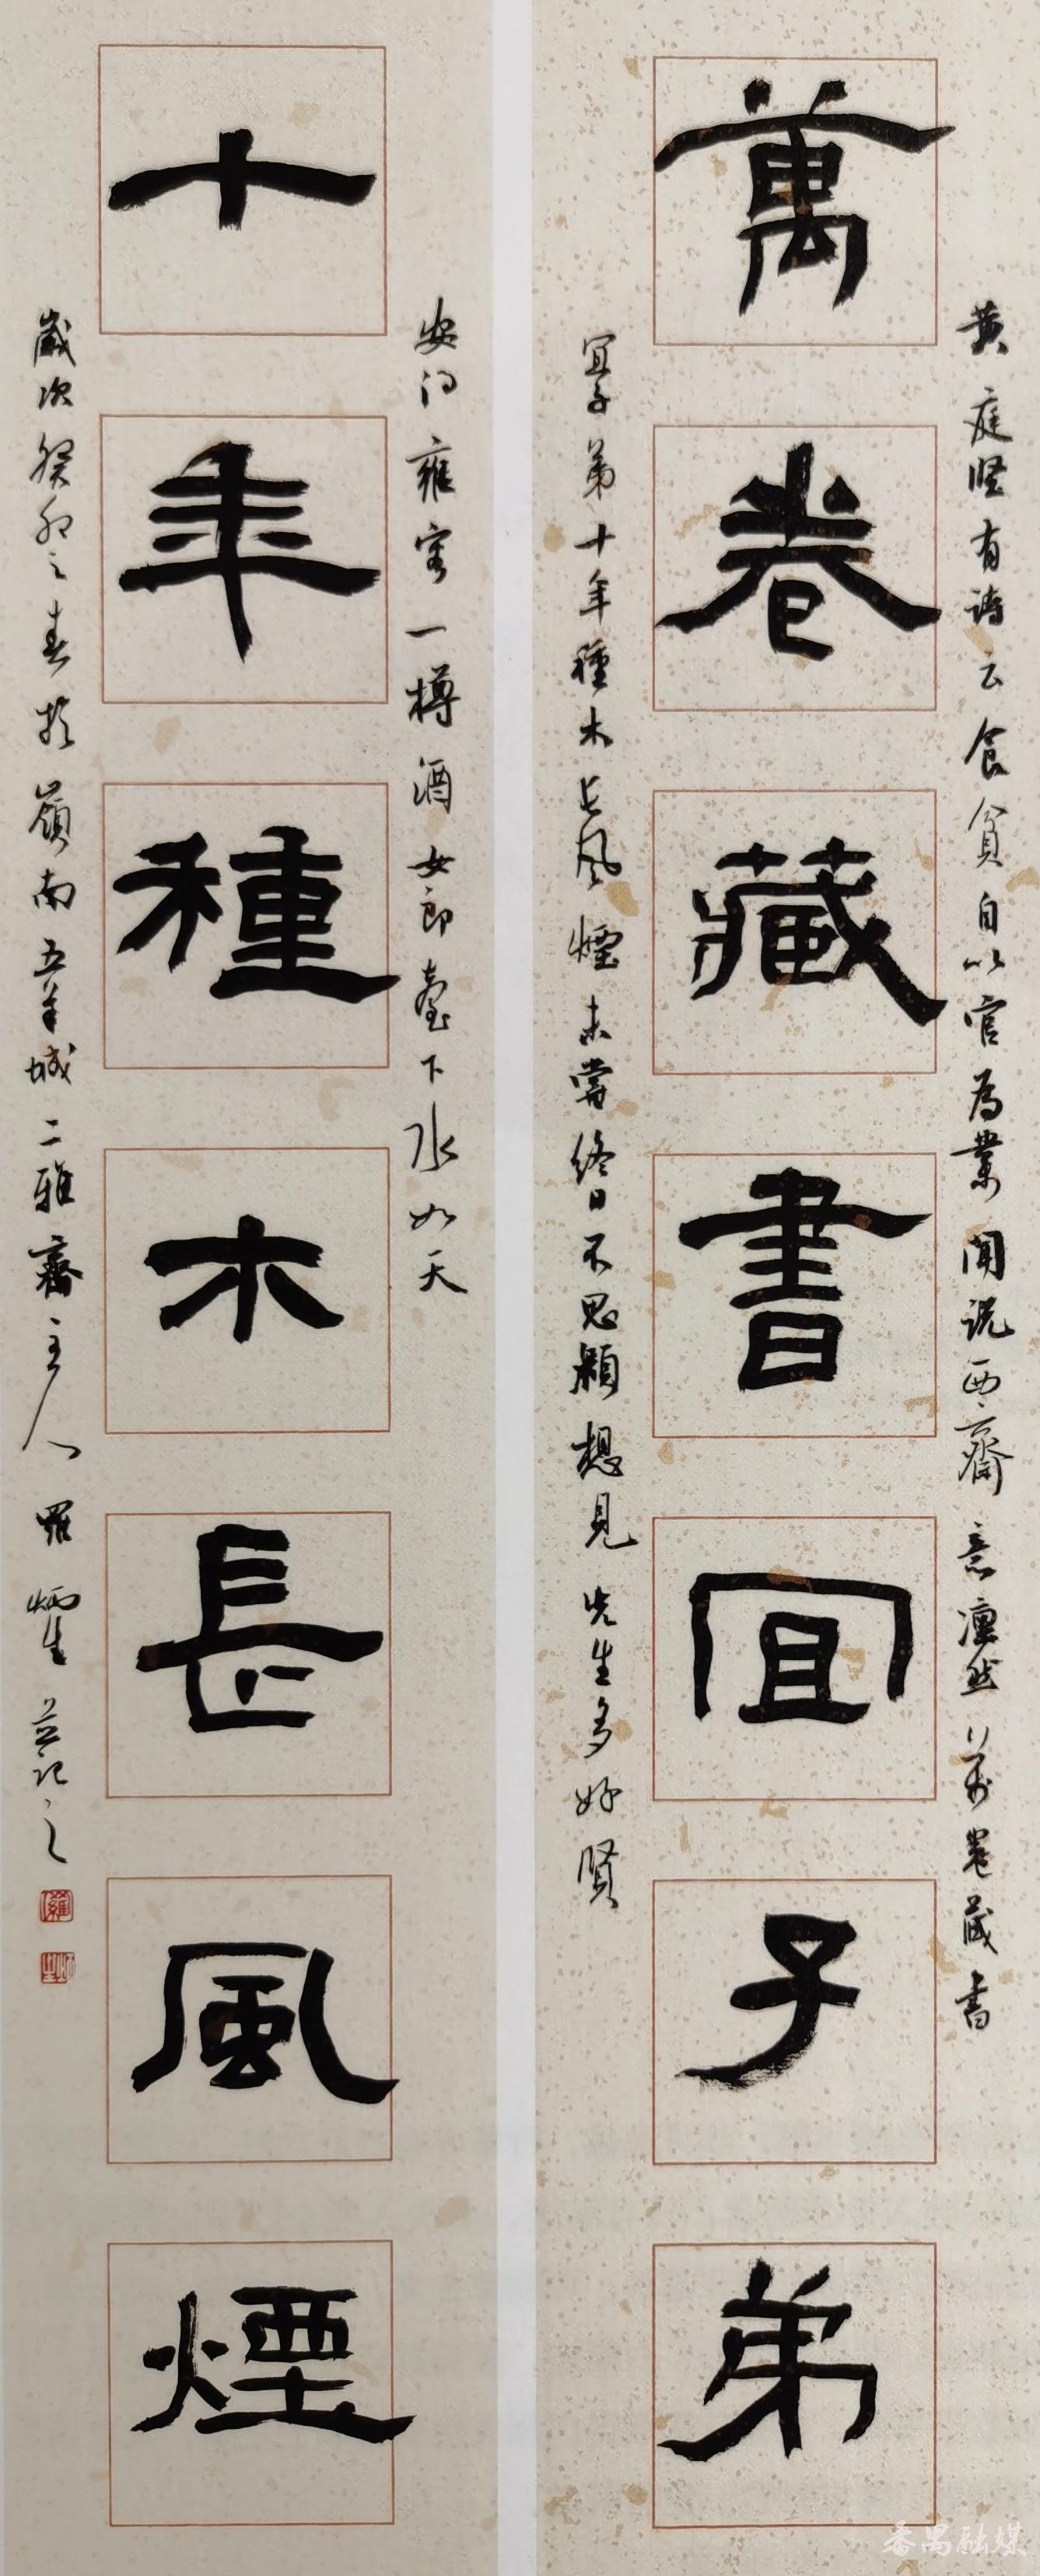 萬卷藏書宜子弟
黄庭堅有詩云食貧自以官為業聞說西齋意凛然萬卷藏書
宜子弟十年種木長風煙未嘗終日不思潁想見先生多好賢
十年種木長風煙
安得雍容一樽酒女郎臺下水如天
歲次癸卯之春於嶺南五羊城二雅齋主人羅炳生並記之
番禺融媒